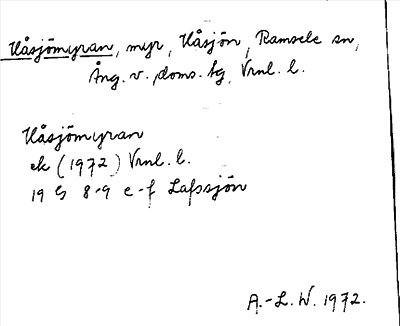 Håsjömyran, myr, Håsjön, Ramsele sn,
Ång. v. doms. bg, Vrnl. l.
Håsjömyran
ek (1972) Vrnl. l.
19 G 8-9 e-f Lafssjön
A.-L. W. 1972.